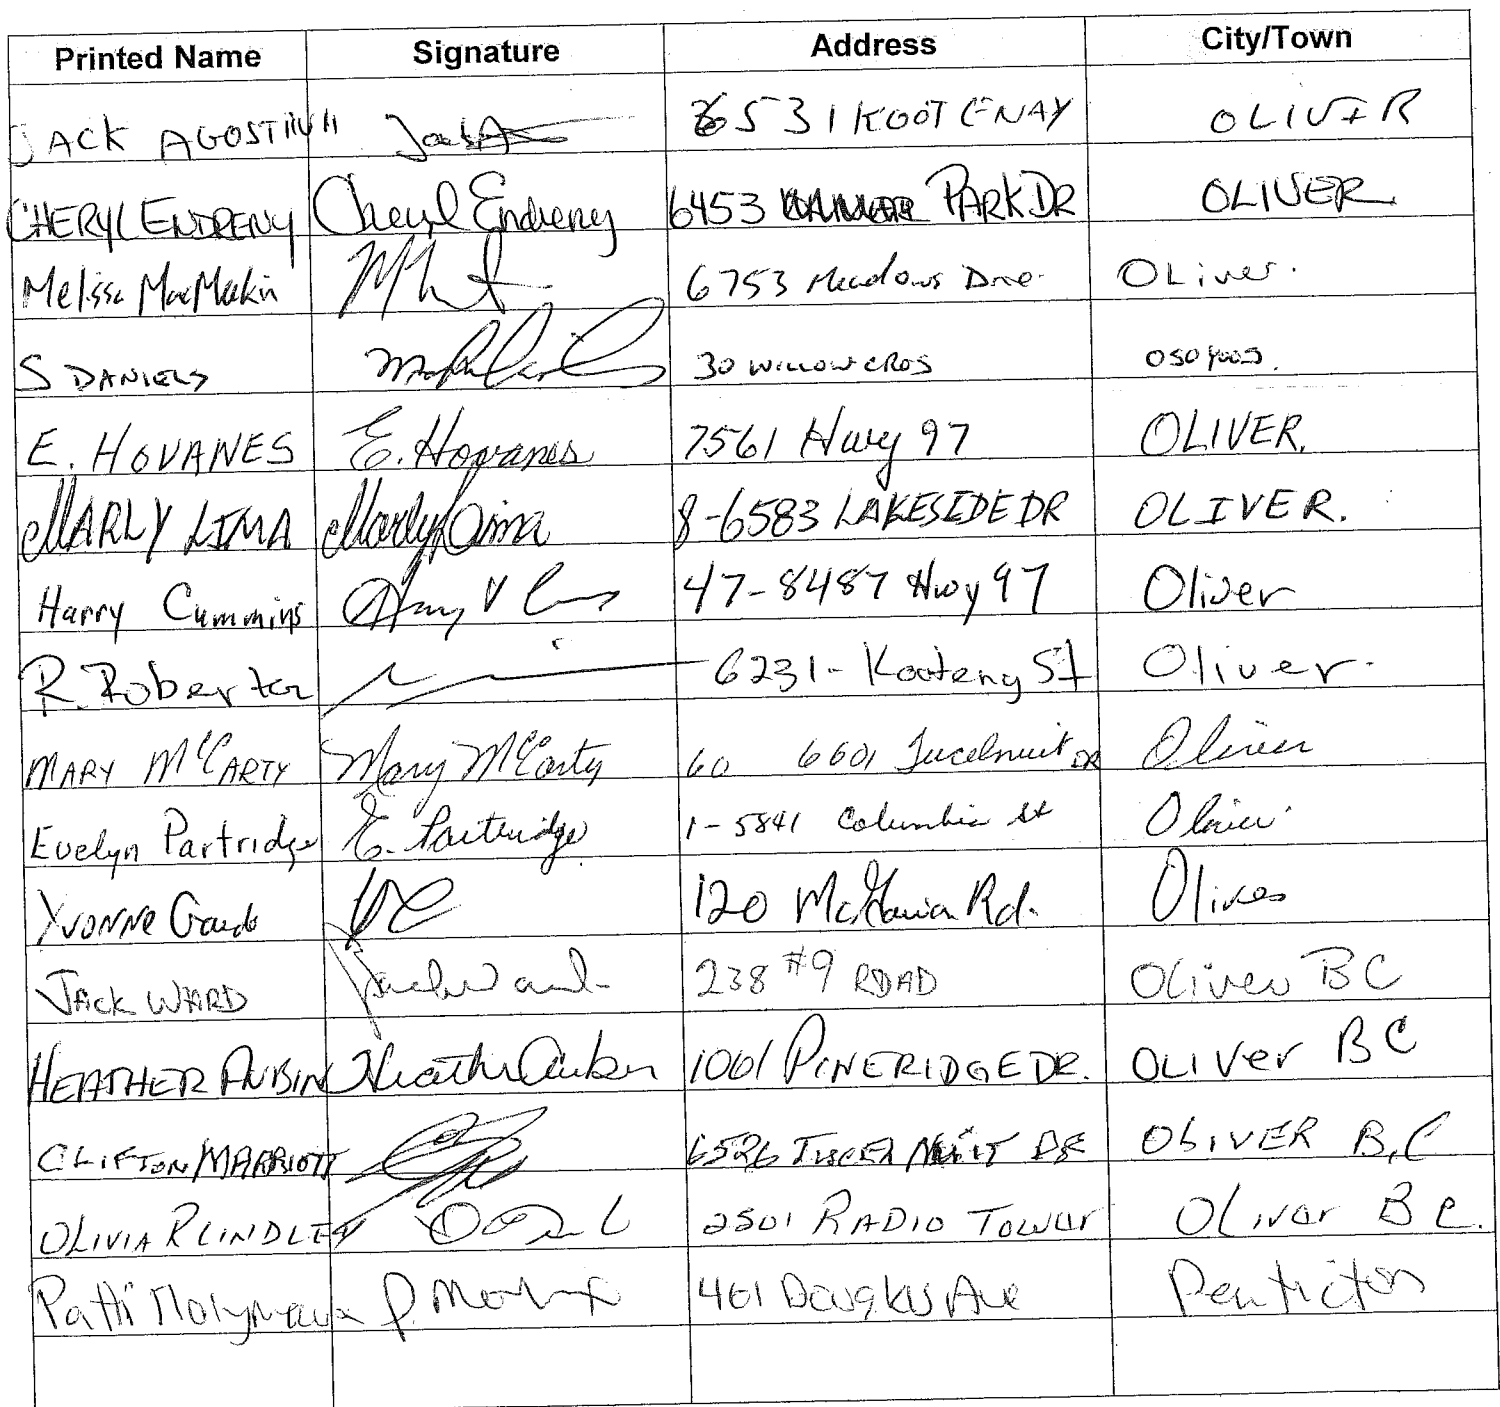 Printed Name Signature Address City/Town
JACK AGOSTINI 6531 KOOTENAY OLIVER
CHERYL ENDRENY Cheryl Endreny 6453 PARK DR OLIVER
Melissa MacMeekin 6753 Meadows Drive OLiver.
S DANIELS 30 WILLOW CROS OSOYOOS.
E. HOVANES E. Hovanes 7561 Hwy 97 OLIVER.
MARLY LIMA Marly Lima 8-6583 LAKESIDE DR OLIVER.
Harry Cummins 47-8487 Hwy 97 Oliver
R. Roberton 6231-Kooteny St Oliver.
MARY McCARTY Mary McCarty 60 6601 Tucelnuit DR Oliver
Evelyn Partridge E. Partridge 1-5841 Columbia St Oliver
Yvonne 120 Rd. Oliver
JACK WARD Jack Ward 238 #9 ROAD Oliver BC
HEATHER AUBIN Heather Aubin 1061 PINERIDGE DR. OLIVer BC
CLIFTON MARRIOTT 6526 DR OLIVER B.C
OLIVIA R LINDLEY 2501 RADIO TOWER OLiver BC.
Patti Molyneaux 461 Douglas Ave Penticton